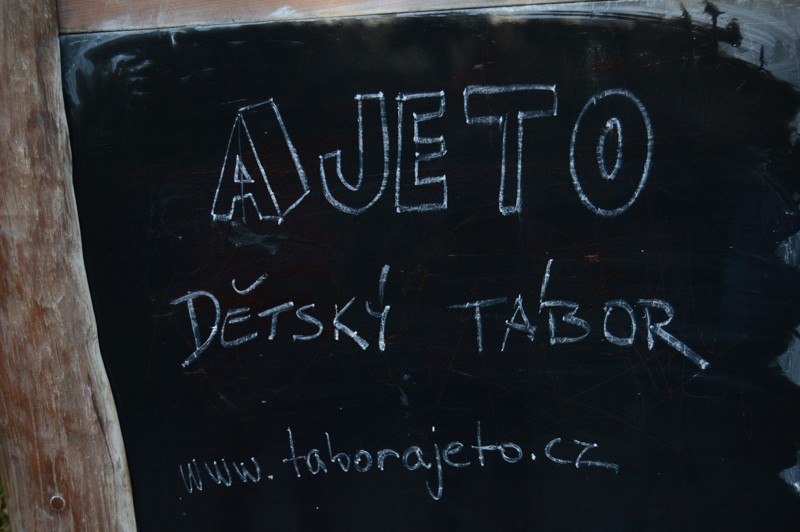 AJETO
DĚTSKÝ TÁBOR
www.taborajeto.cz